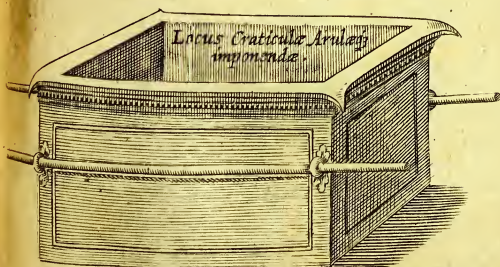 Locus Craticulæ Arulæq́;
imponendæ.